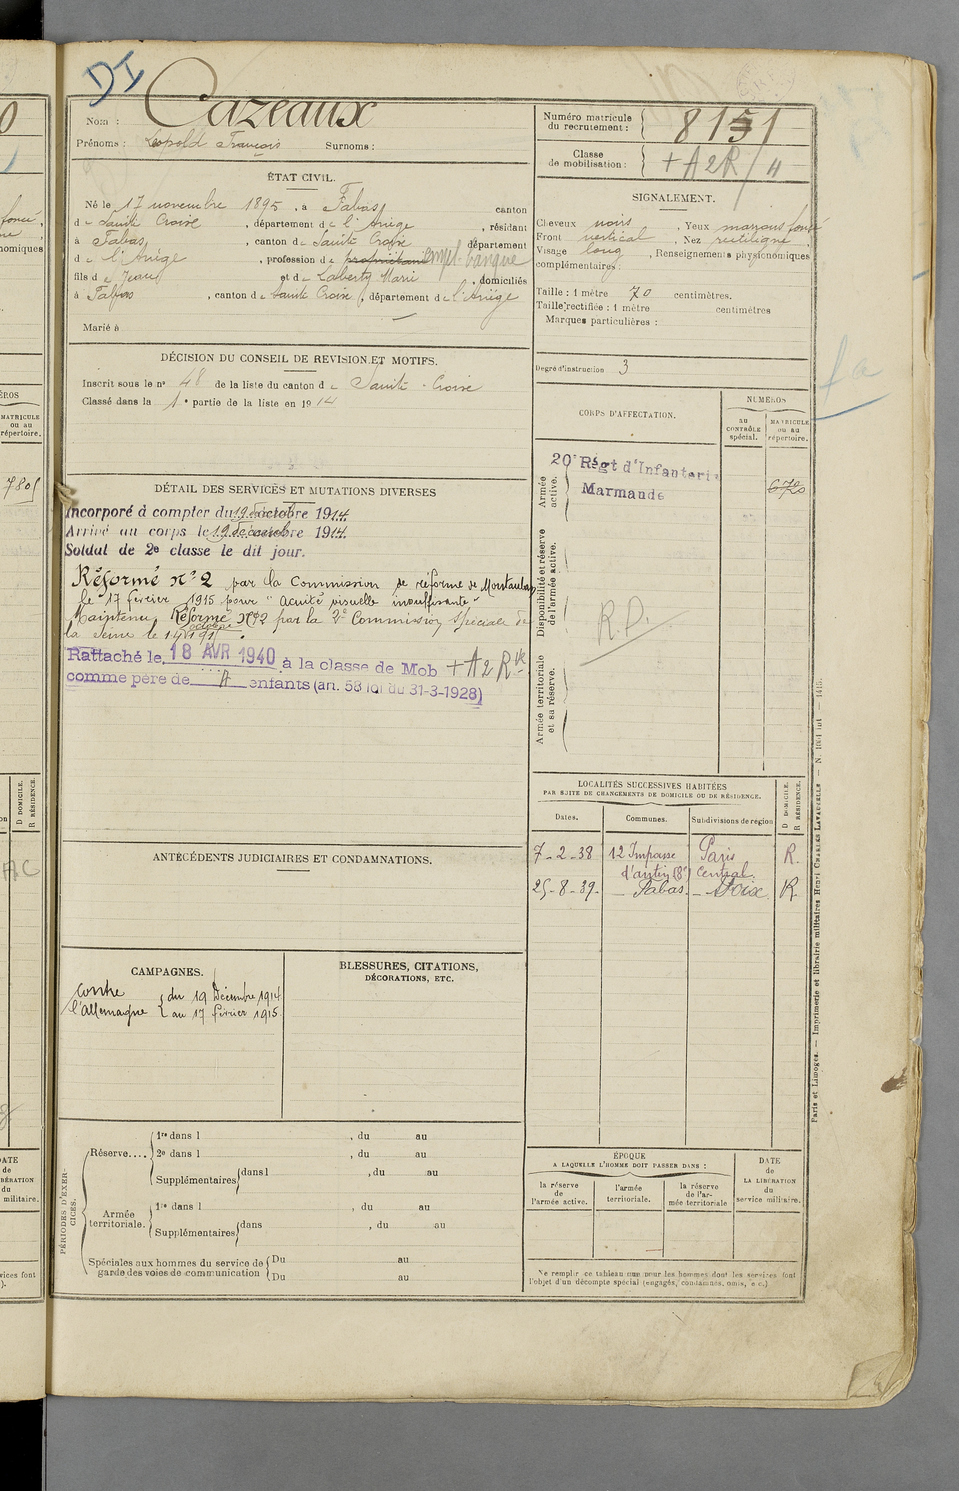 DI
Nom : Cazeaux
Prénoms : Léopold François Surnoms :
ÉTAT CIVIL.
Né le 17 novembre 1895, à Fabas, canton
de Sainte Croix, département de l'Ariège, résidant
à Fabas, canton de Sainte Croix, département
de l'Ariège, profession de propriétaire empl. banque
fils de Jean et de Laberty Marie, domiciliés
à Fabas, canton de Sainte Croix, département de l'Ariège
Marié à
DÉCISION DU CONSEIL DE REVISION ET MOTIFS.
Inscrit sous le n° 48 de la liste du canton de Sainte-Croix
Classé dans la 1e partie de la liste en 1914
DÉTAIL DES SERVICES ET MUTATIONS DIVERSES
Incorporé à compter du 19 décembre 1914.
Arrivé au corps le 19 décembre 1914.
Soldat de 2e classe le dit jour.
Réformé n° 2 par la Commission de réforme de Montauban
le 17 février 1915 pour "Acuité visuelle insuffisante"
Maintenu Réformé n° 2 par la 2e Commission Spéciale de
la Seine le 14 octobre 191
Rattaché le 18 AVR 1940 à la classe de Mob + A 2 R
comme père de A enfants (art. 58 loi du 31-3-1928)
ANTÉCÉDENTS JUDICIAIRES ET CONDAMNATIONS.
CAMPAGNES.
contre l'Allemagne { du 19 Décembre 1914
au 17 février 1915.
BLESSURES, CITATIONS,
DÉCORATIONS, ETC.
PÉRIODES D'EXERCICES.
Réserve.... 1re dans l , du au
2e dans l , du au
Supplémentaires dans l , du au
Armée territoriale. 1re dans l , du au
Supplémentaires dans , du au
Spéciales aux hommes du service de garde des voies de communication Du au
Du au
Numéro matricule du recrutement : 8151
Classe de mobilisation : + A 2 R / 4
SIGNALEMENT.
Cheveux noirs, Yeux marrons foncé
Front vertical, Nez rectiligne,
Visage long, Renseignements physionomiques
complémentaires :
Taille : 1 mètre 70 centimètres.
Taille rectifiée : 1 mètre centimètres
Marques particulières :
Degré d'instruction 3
fa
CORPS D'AFFECTATION.
NUMÉROS
AU CONTRÔLE spécial.
MATRICULE ou au répertoire.
Armée active.
20e Régt d'Infanterie
Marmande
670
Disponibilité et réserve de l'armée active.
R.D.
Armée territoriale et sa réserve.
LOCALITÉS SUCCESSIVES HABITÉES
PAR SUITE DE CHANGEMENTS DE DOMICILE OU DE RÉSIDENCE.
Dates. Communes. Subdivisions de région
D DOMICILE.
R RÉSIDENCE.
7-2-38 12 Impasse d'antin (8e) Paris Central. R.
25-8-39. Fabas. Foix. R
ÉPOQUE
A LAQUELLE L'HOMME DOIT PASSER DANS :
la réserve de l'armée active.
l'armée territoriale.
la réserve de l'armée territoriale
DATE de LA LIBÉRATION du service militaire.
Ne remplir ce tableau que pour les hommes dont les services font
l'objet d'un décompte spécial (engagés, condamnés, omis, etc.)
Paris et Limoges. — Imprimerie et librairie militaires Henri CHARLES-LAVAUZELLE